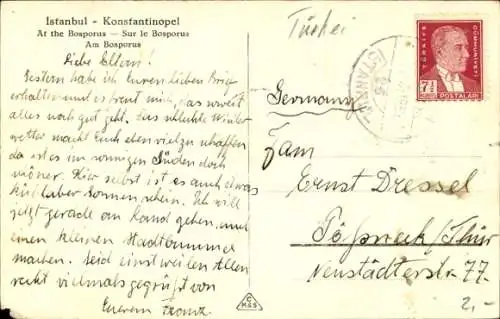 Istanbul - Konstantinopel
At the Bosporus — Sur le Bosporus
Am Bosporus
Liebe Eltern!
Gestern habe ich Euren lieben Brief
erhalten und es freut mich, das soweit
alles noch gut geht, das schlechte Winter
wetter macht Euch eben viel zu schaffen
da ist es im sonnigen Süden doch
schöner. Hier selbst ist es auch etwas
kühl aber Sonnenschein. Ich will
jetzt gerade an Land gehen und
einen kleinen Stadtbummel
machen. Seid einstweilen Allen
recht vielmals gegrüßt von
Eurem Franz
C
M&S
Türkei
TÜRKİYE
CUMHURİYETİ
7½
POSTALARI
ISTANBUL
Germany
Fam
Ernst Dressel
Pößneck/Thür
Neustädterstr 77
2,-